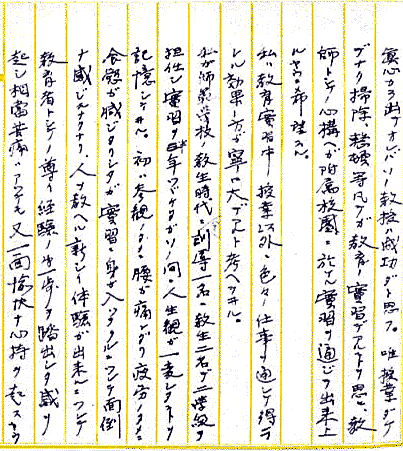 真心カラ出テオレバソノ教授ハ成功ダト思フ。唯授業ダケ
デナク掃除、整頓等凡テガ教育ノ実習デアルト思ヒ、教
師トシテノ心構ヘガ附属校園ニ於ケル実習ヲ通ジテ出来上
ル事ヲ希望スル。
私ハ教育実習中ノ授業以外ノ色々ノ仕事ヲ通シテ得ラ
レル効果ノ方ガ寧ロ大デアルト考ヘテヰル。
私ガ師範学校ノ教生時代ニ訓導一名ニ教生二名デ二学級ヲ
担任シ実習ヲ半年ツヾケタガソノ間ニ人生観ガ一変シタ
記憶シテヰル。初ハ参観ノタメニ腰ガ痛クナリ疲労ノタメニ
食慾ガ減ジタリシタガ実習ニ身ガ入ツタタメニシテ面倒
ナ感ジハナクナリ、人ヲ教ヘル新シイ体験ガ出来
教育者トシテノ尊イ経験ノ第一歩ヲ踏出シタ感ヲ
起シ相当苦痛デアツテモ又一面愉快ナ心持ヲ起ス